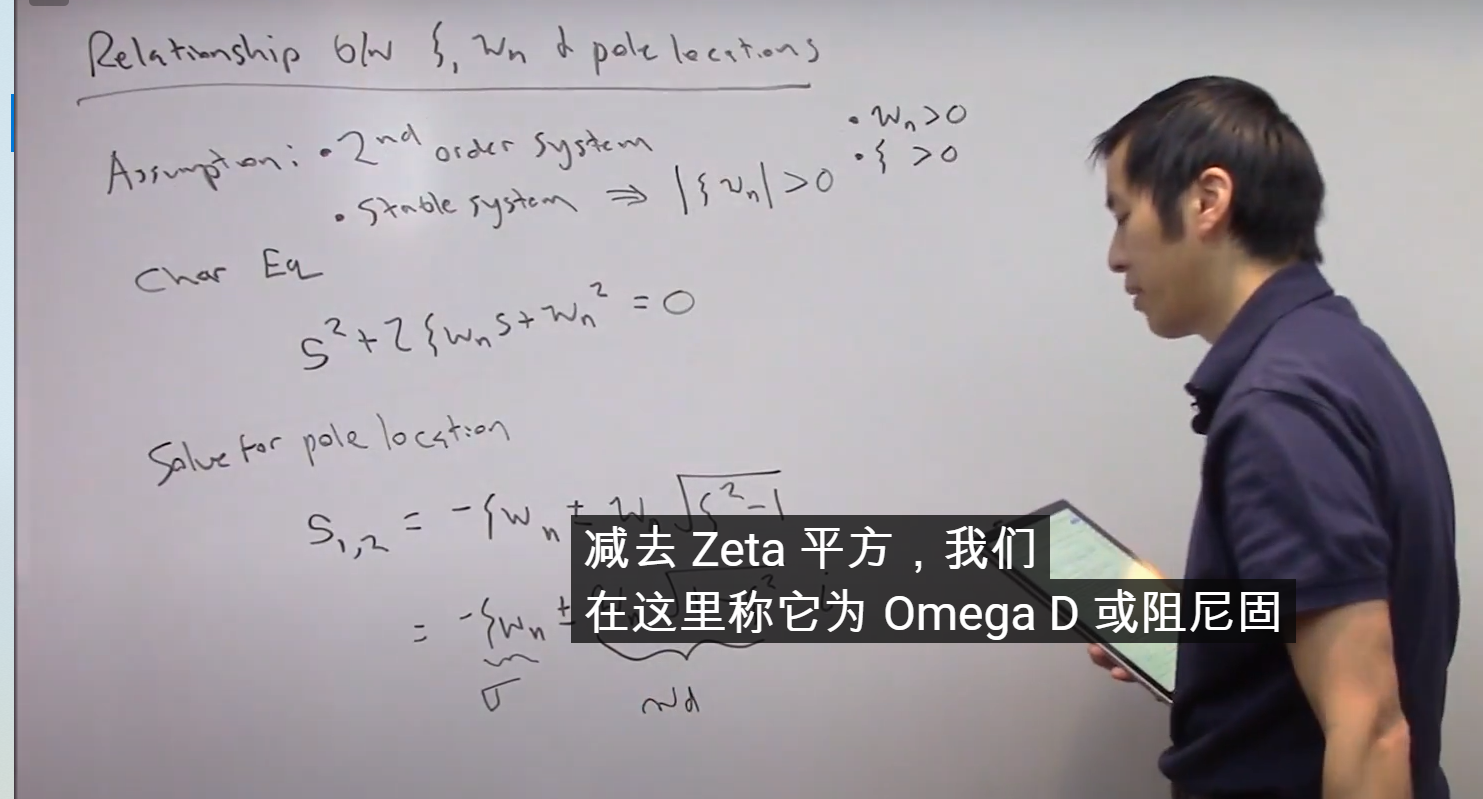 Relationship b/w ζ, ωn & pole locations
Assumption: • 2nd order system
• Stable system ⇒ |ζωn| > 0
• ωn > 0
• ζ > 0
Char Eq
S² + 2ζωnS + ωn² = 0
Solve for pole location
S1,2 = -ζωn ± ωn√ζ²-1
= -ζωn ±
σ
ωd
减去 Zeta 平方，我们
在这里称它为 Omega D 或阻尼固